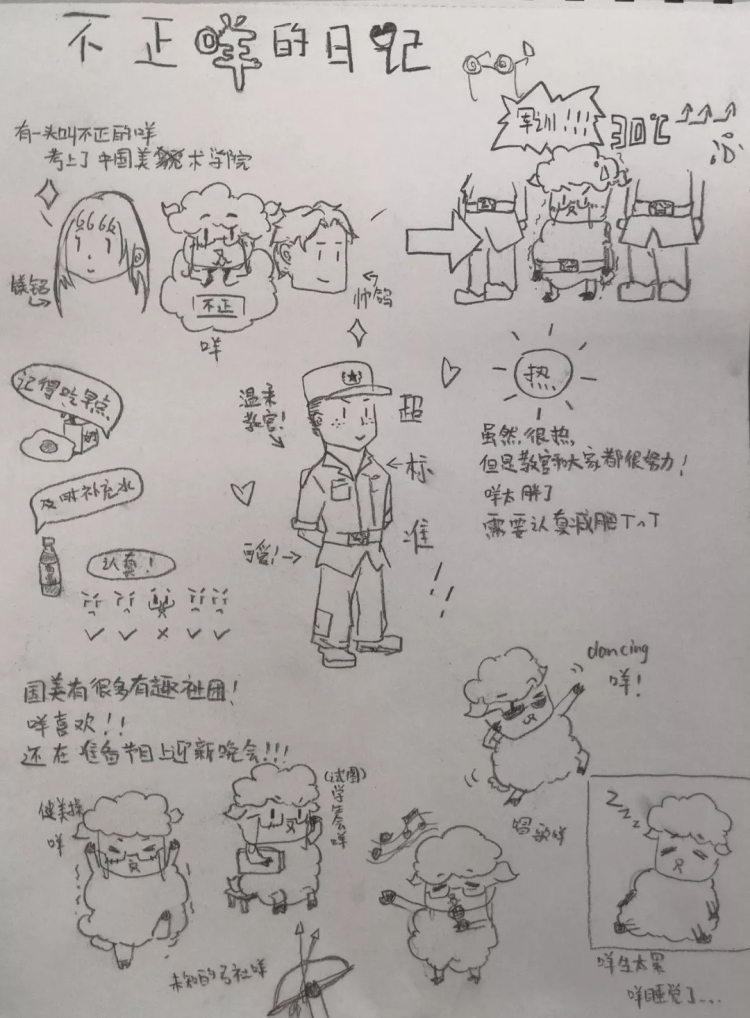 不正咩的日记
有一头叫不正的咩
考上了中国美术学院
军训!!!
30℃
6666
不正
咩
帅鸽
记得吃早点
及时补充水
认真!
温柔
教官!
可爱!
超
标
准
!!
热
虽然很热,
但是教官和大家都很努力!
咩太胖了
需要认真减肥T^T
国美有很多有趣社团!
咩喜欢!!
还在准备节目上迎新晚会!!!
dancing
咩!
健美操
咩
(试图)
学生会咩
唱歌咩
未知的弓社咩
ZZZ
咩生太累
咩睡觉了...